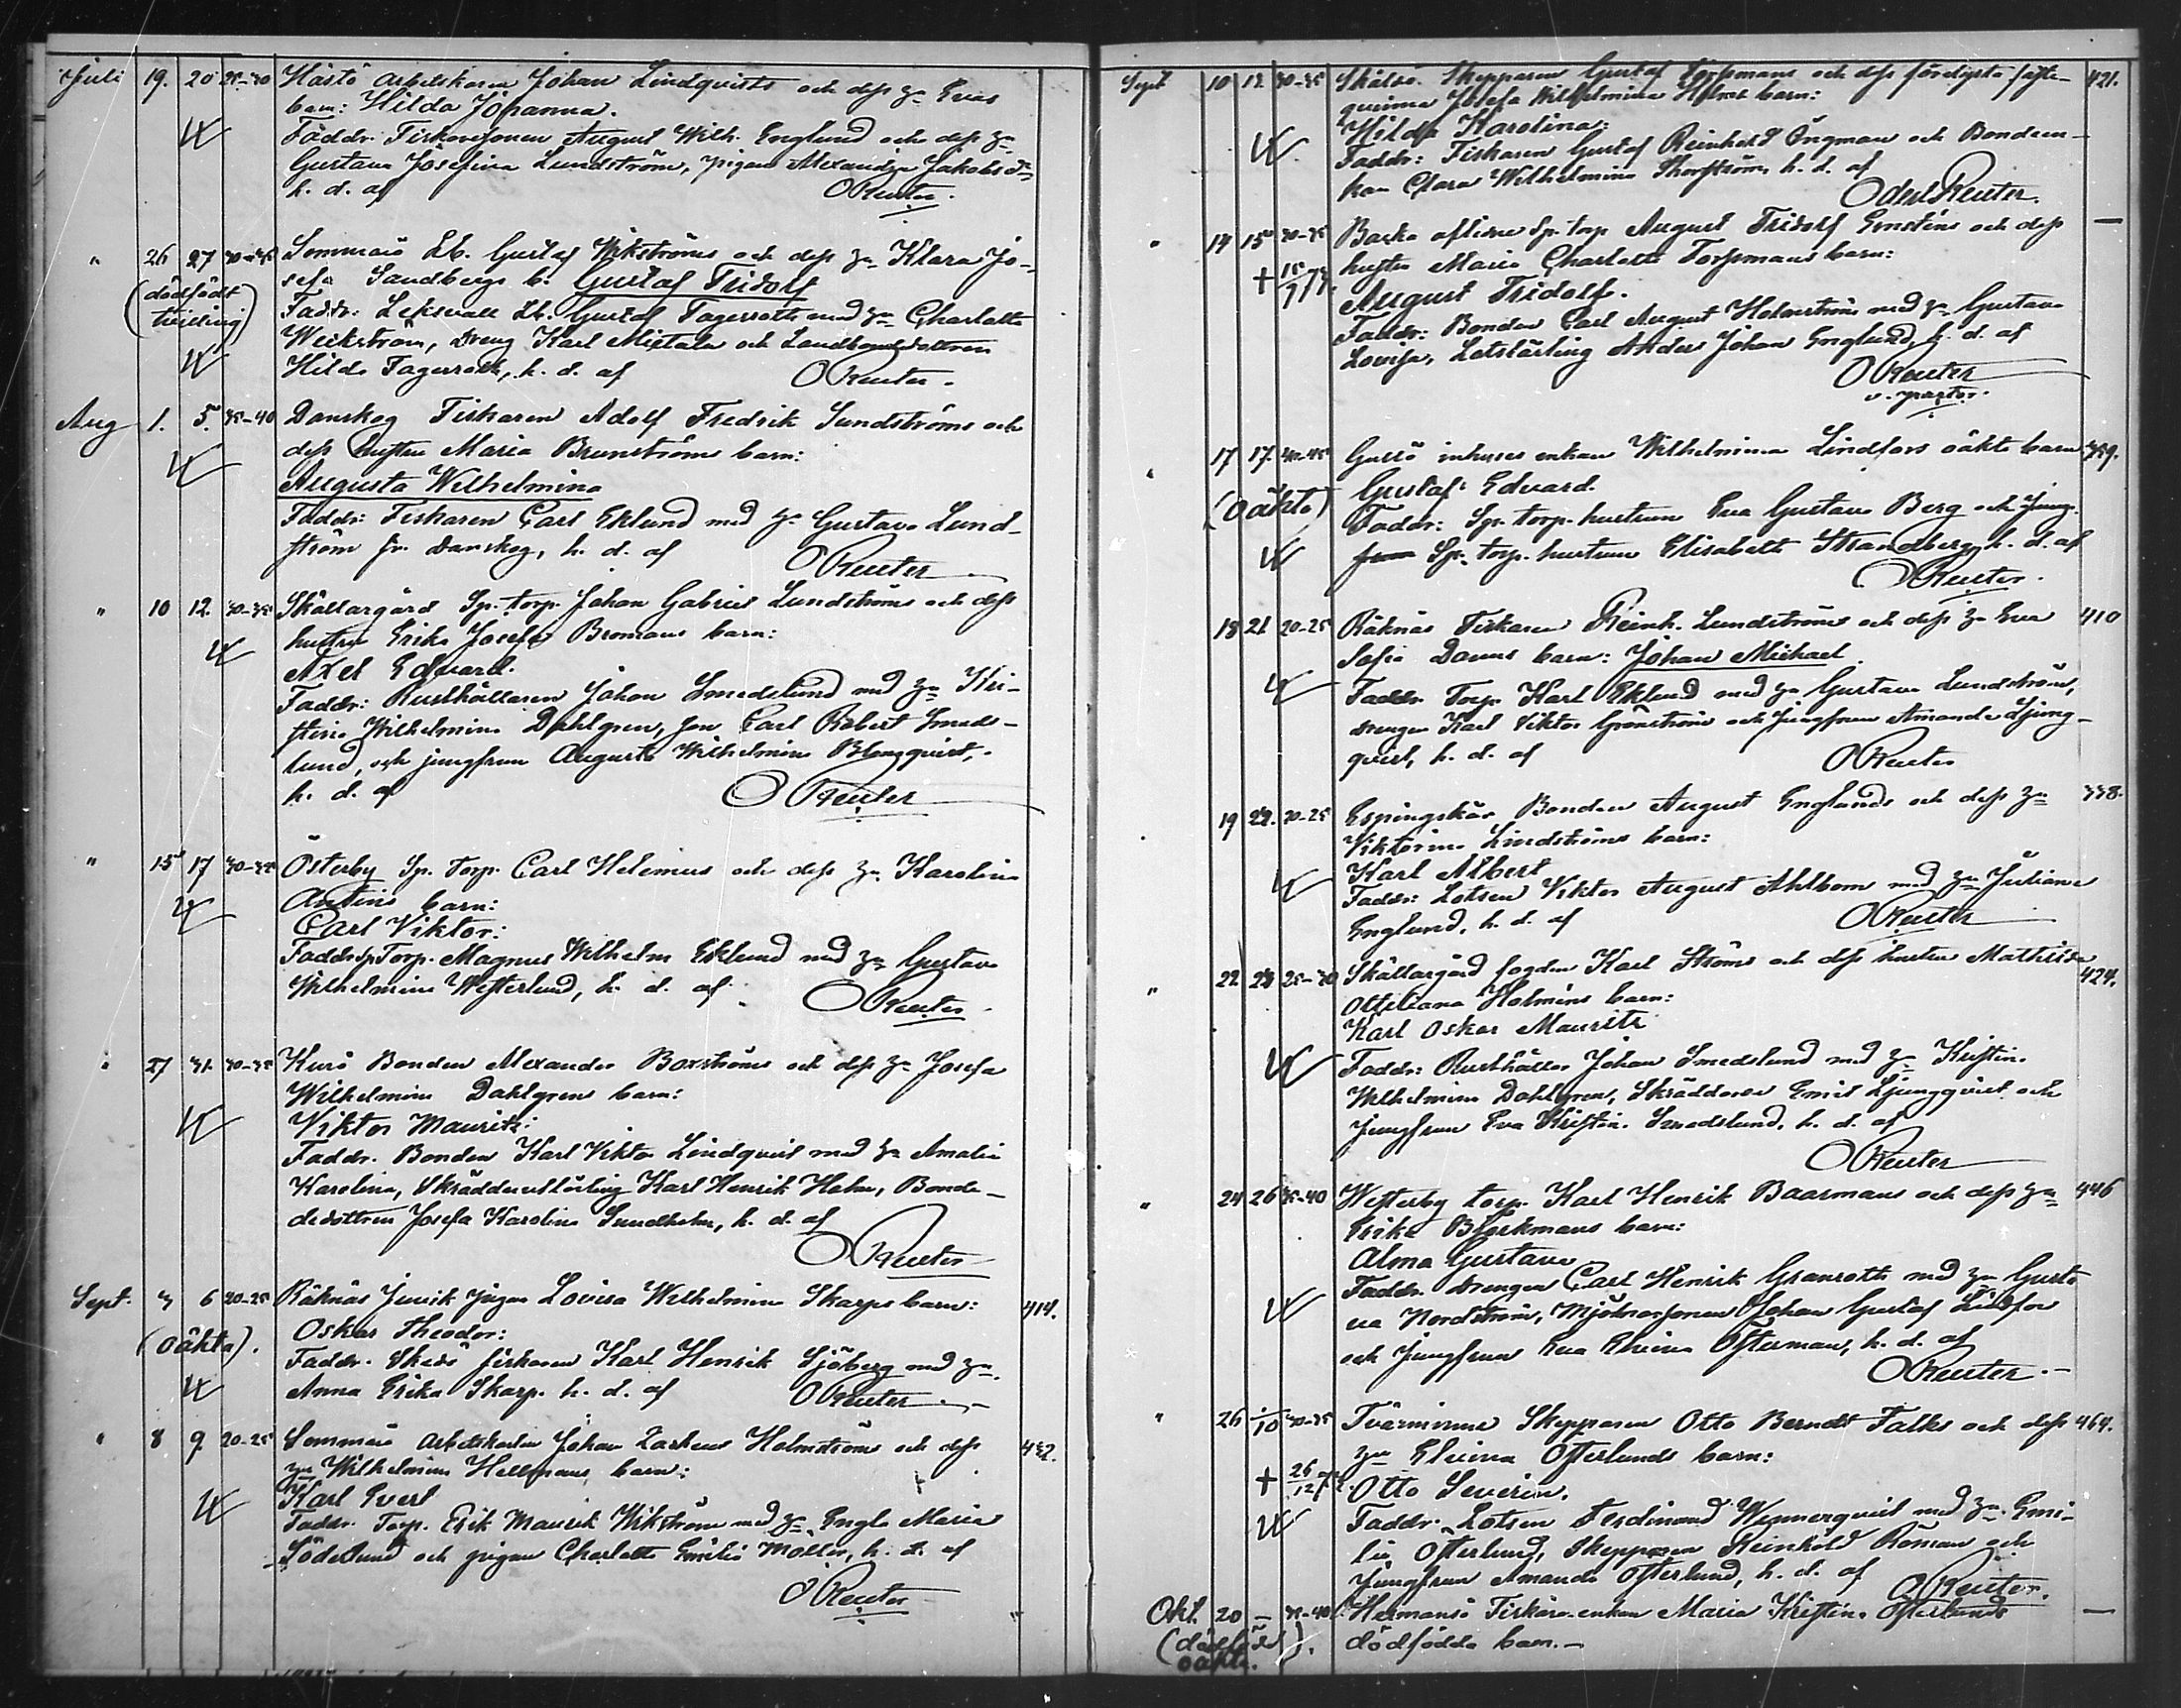 Juli 19. 20 25-30 Hästö arbetskaren Johan Lindqvists och dess h:u Evas
barn: Hilda Johanna.
Faddr. Fiskaresonen August Wilh. Englund och dess h:u
Gustava Josefina Lundström, pigan Alexandra Jakobsd:r
h. d. af OReuter.
" 26 27 Sommarö Lb. Gustaf Wikströms och dess h:u Klara Jo-
sefa Sandbergs b. Gustaf Fridolf
(dödfödt
tvilling)
Faddr: Leksvall Lb. Gustaf Fagerroth med h:u Charlotta
Weckström, dreng Karl Mixtala och Landbondedottren
Hilda Fagerroth, h. d. af OReuter.
Aug 1. 5. 35-40 Danskog Fiskaren Adolf Fredrik Sundströms och
dess hustru Maria Brunströms barn:
Augusta Wilhelmina
Faddr: Fiskaren Carl Eklund med h:u Gustava Lund-
ström fr. Danskog, h. d. af OReuter
" 10 12. 30-35 Skällargård Sp. torp. Johan Gabriel Lundströms och dess
hustru Erika Josefa Bromans barn:
Axel Edvard.
Faddr: Rusthållaren Johan Smedslund med h:u Kri-
stina Wilhelmina Dahlgren, son Carl Robert Smeds-
lund, och jungfrun Augusta Wilhelmina Blomqvist,
h. d. af OReuter
" 15 17 Österby Sp. Torp. Carl Helenius och dess h:u Karolina
Antins barn:
Carl Viktor:
Faddr Sp Torp. Magnus Wilhelm Eklund med h:u Gustava
Wilhelmina Westerlund, h. d. af OReuter
" 27 31. 30-35 Kurö Bonden Alexander Boxströms och dess h:u Josefa
Wilhelmina Dahlgrens barn:
Viktor Mauritz:
Faddr. Bonden Karl Viktor Lindqvist med h:u Amalia
Karolina, Skräddarelärling Karl Henrik Hahn, Bonde-
dedottren Josefa Karolina Sundholm, h. d. af
OReuter
Sept. 3 6 20-25 Räknäs Junik pigan Lovisa Wilhelmina Skarps barn: 414.
(oäkta). Oskar Theodor:
Faddr. Skedö fiskaren Karl Henrik Sjöberg med h:u
Anna Erika Skarp. h. d. af OReuter
" 8 9 20-25 Sommarö arbetskarlen Johan Holmströms och dess 432.
h:u Wilhelmina Hellmans barn:
Karl Evert
Faddr. Torp. Erik Maurits Wikström med h:u Engla Maria
Söderlund och pigan Charlotta Emilia Moller, h. d. af
OReuter
Sept 10 12. 30-35 Skåldö. Skepparen Gustaf Torssmans och dess föregifta fäste- 421.
qvinna Josefa Wilhelmina Holms barn:
Hilda Karolina:
Faddr: Fiskaren Gustaf Reinhold Öngman och Bonden-
kan Clara Wilhelmina Skogström h. d. af
OReuter.
" 14 15 30-35 Backa aflidne Sp. torp. August Fridolf Ernsténs och dess —
hustru Maria Charlotta Torssmans barn:
August Fridolf.
Faddr: Bonden Carl August Holmström med h:u Gustava
Lovisa, Lotslärling Anders Johan Englund, h. d. af
OReuter
v. pastor.
17 17. 40-45 Gullö inhyses enkan Wilhelmina Lindfors oäkta barn 459.
(oäkta) Gustaf Edvard.
Faddr: Sp. torp. hustrun Eva Gustava Berg och jung-
frun Sp. torp. hustrun Elisabeth Strandberg, h. d. af
OReuter.
18 21 20-25 Räknäs Fiskaren Reinh. Lundströms och dess h:u Eva 410
Sofia Danns barn: Johan Michael
Faddr Torp. Karl Eklund med h:u Gustava Lundström,
drengen Karl Viktor Grönström och jungfrun Amanda Ljung-
qvist, h. d. af OReuter
19 22. 20-25 Espingskär Bonden August Englunds och dess h:u 338.
Viktorina Lindströms barn:
Karl Albert
Faddr: Lotsen Viktor August Ahlbom med h:u Juliana
Englund. h. d. af OReuter
" 22 23 25-30 Skällargård fogden Karl Ströms och dess hustru Mathilda 424.
Ottiliana Holmins barn:
Karl Oskar Mauritz
Faddr: Rusthåller Johan Smedslund med h:u Kristina
Wilhelmina Dahlgren, Skräddaren Emil Ljungqvist och
jungfrun Eva Kristina Smedslund. h. d. af
OReuter
" 24 26 35-40 Westerby torp. Karl Henrik Baarmans och dess h:u 446
Erika Björkmans barn:
Alma Gustava
Faddr. drengen Carl Henrik Granroth med h:u Gusta
va Nordström, Mjölnaresonen Johan Gustaf Lindfors
och jungfrun Eva Elvira Österman, h. d. af
OReuter.
" 26 1/10 30-35 Tvärminne Skepparen Otto Berndt Falks och dess 464.
h:u Elvira Österlunds barn:
Otto Severin.
Faddr. Lotsen Ferdinand Wennerqvist med h:u Emi-
lia Österlund, Skepparen Reinhold Röman och
jungfrun Amanda Österlund, h. d. af OReuter.
Okt. 20 — 35-40 Hermansö Fiskare-enkan Maria Kristina Österlunds —
(dödfödd). dödfödda barn.—
oäkta.